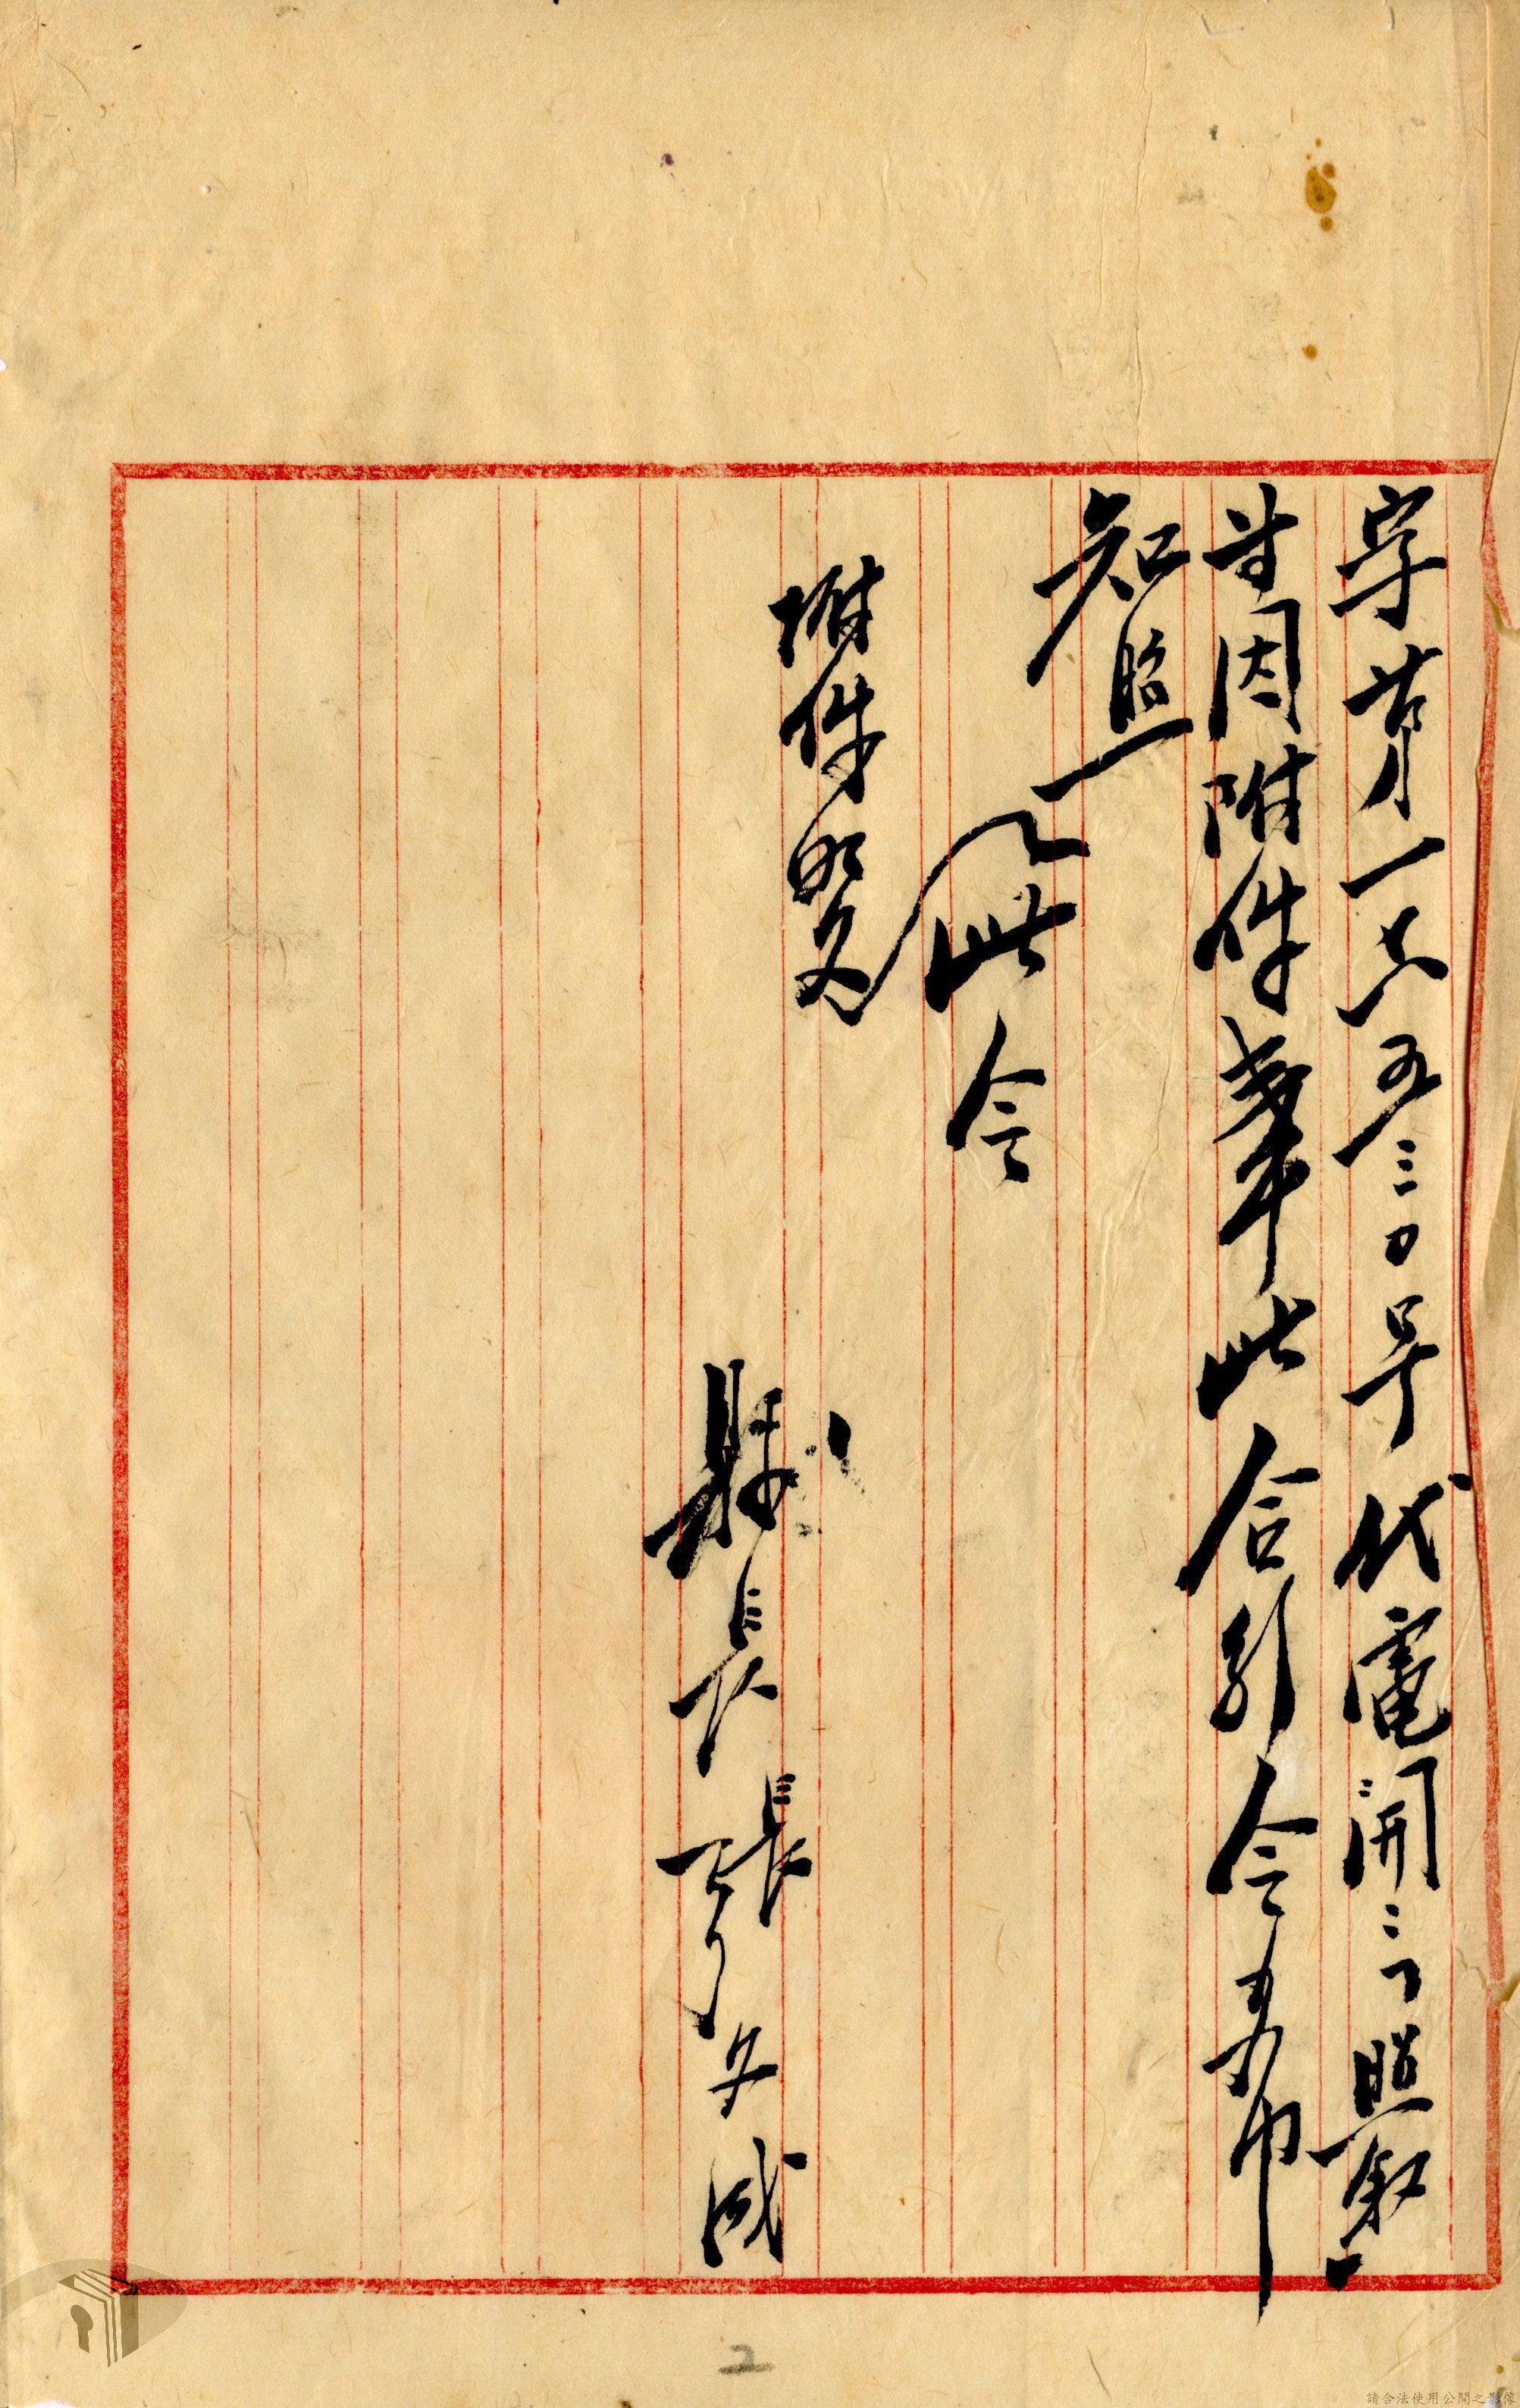 字第一六五三0号代電開：「照叙」
等因附件奉此合行令希
知照
此令
附件
縣長張文成
2
請合法使用公開之影像